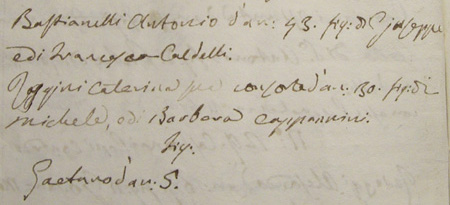 Bastianelli Antonio d'an: 43. fig: di Giuseppe
e di Francesca Caldelli.
Caterina sua consorte d'an: 30. fig: di
Michele, e di Barbera Cappannini.
fig:
Gaetano d'an: 5.